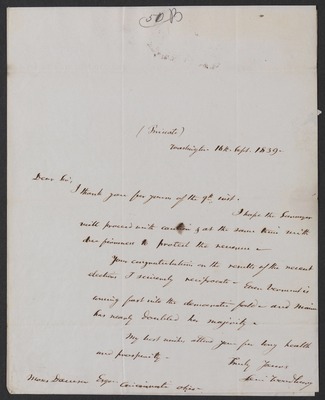 50
(Private)
Washington 16th. Sept. 1839-
Dear Sir,
I thank you for yours of the 9th. inst.
I hope the Surveyor
will proceed with caution & at the same time with
firmness to protect the revenue-
Your congratulations on the results of the recent
elections I sincerely reciprocate- Even Vermont is
coming fast into the democratic fold- and Maine
has nearly doubled her majority-
My best wishes attend you for long health
and prosperity-
Truly Yours
Levi Woodbury
Moses Dawson Esqr. Cincinnati Ohio-